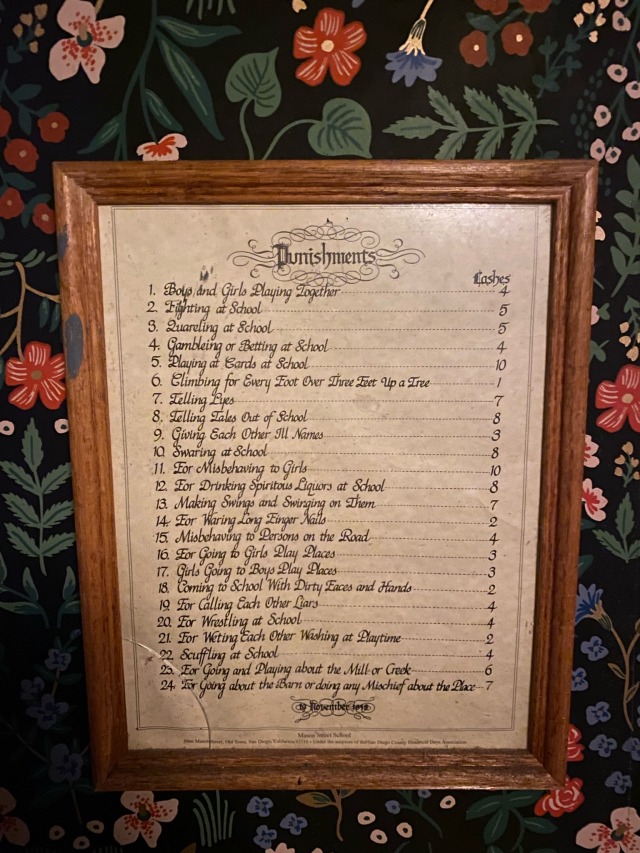 Punishments
Lashes
1. Boys and Girls Playing Together 4
2. Fighting at School 5
3. Quareling at School 5
4. Gambleing or Betting at School 4
5. Playing at Cards at School 10
6. Climbing for Every Foot Over Three Feet Up a Tree 1
7. Telling Lyes 7
8. Telling Tales Out of School 8
9. Giving Each Other Ill Names 3
10. Swaring at School 8
11. For Misbehaving to Girls 10
12. For Drinking Spiritous Liquors at School 8
13. Making Swings and Swinging on Them 7
14. For Waring Long Finger Nails 2
15. Misbehaving to Persons on the Road 4
16. For Going to Girls Play Places 3
17. Girls Going to Boys Play Places 3
18. Coming to School With Dirty Faces and Hands 2
19. For Calling Each Other Liars 4
20. For Wrestling at School 4
21. For Weting Each Other Washing at Playtime 2
22. Scuffling at School 4
23. For Going and Playing about the Mill or Creek 6
24. For Going about the Barn or doing any Mischief about the Place 7
November
Mason Street School
Mason Street, Old Town, San Diego, California Under the auspices of the San Diego County Historical Days Association